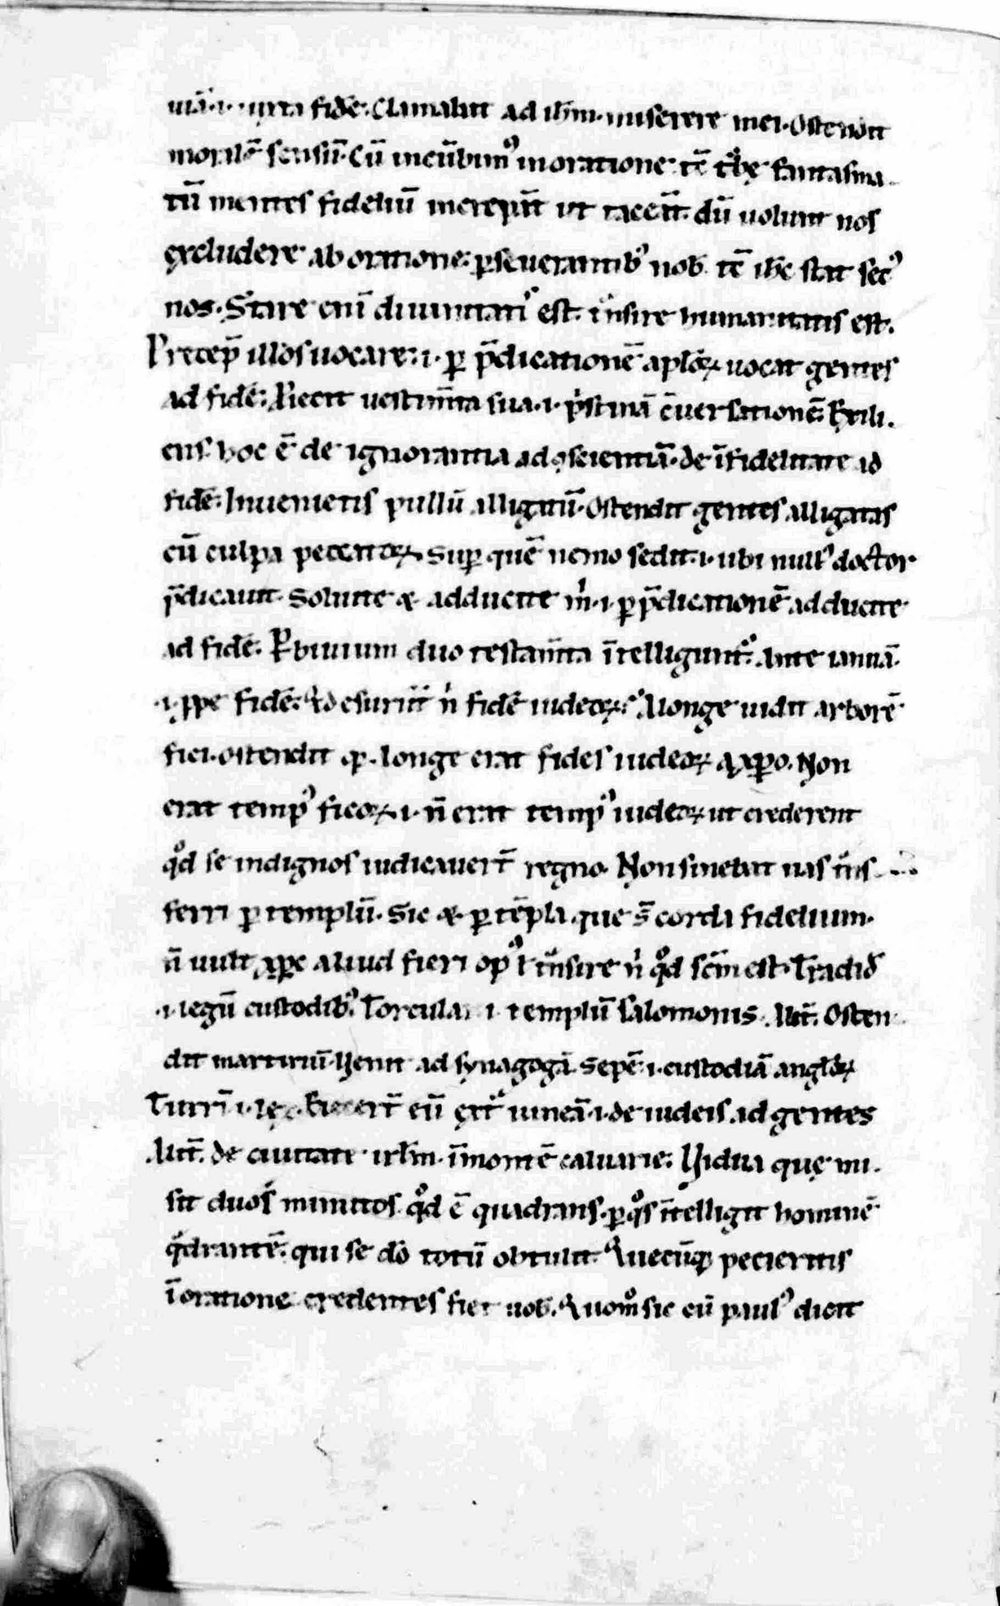 uiā·i· iuxta fidē· Clamabat ad ihm̄· miserere mei· Ostendit
moralē sensū· Cū incūbimꝰ in oratione· tc̄ tꝰbe fantasma
tū mentes fideliū increpāt ut taceāt dū uolunt nos
excludere ab oratione· ꝑseuerantibꝰ nob̄ tc̄ ihc̄ stat secꝰ
nos· Stare eni̅ diuinitatiˢ est· tͣnsire humanitatis est·
Precep̄ illos uocare· i· ꝑ p̄dicationē aplo̅ꝝ uocat gentes
ad fidē· Proiecit uestim̄ta sua· i· pͥstinā c̄uersationē· Exili
ens· hoc ē de ignorantia ad scientiā· de i̅fidelitate ad
fidē· Inuenietis pullū alligatū· Ostendit gentes alligatas
cū culpa peccatoꝝ· Suꝑ quē nemo sedit· i· ubi nullꝰ doctor
p̄dicauit· Soluite & adducite mͥ· i· ꝑ p̄dicationē adducite
ad fidē· ꝑ biuium duo testam̄ta i̅telliguntᷣ· Ante ianuā·
·i· ꝓpe fidē· Qd̄ esuriit nͥ fidē iudeoꝝ· A longe uidit arborē
fici· ostendit qd̄ longe erat fides iudeoꝝ a xp̄o· Non
erat tempꝰ ficoꝝ· i· n̄ erat tempꝰ iudeoꝝ ut crederent
qͦd se indignos iudicauert̄ regno· Non sinebat uas tͣns
ferri ꝑ templū· Sic & ꝑ tēpla que s̄ corda fidelium·
n̄ uult xp̄c aliud fieri opꝰ ł tͣnsire nͥ qͦd scm̄ est· Tradid̄
·i· legū custodibꝰ· Torcular i· templū salomonis· Alit̄· Osten
dit martiriū· Uenit ad synagogā· Sepē· i· custodiā anglo̅ꝝ
Turri̅· i· leg̅· Eiecert̄ eū extͣ uineā· i· de iudeis ad gentes
Alit̄· de ciuitate irlm̄· i̅ montē caluarie· Uidua que mi
sit duos minutos qͦd ē quadrans· ꝑ qͦs i̅telligit hominē
qͣdrantē· qui se dō totū obtulit· Quecūqꝫ petieritis
i̅ oratione credentes fiet uob̄· Quomͦ sic cū paulꝰ dicit